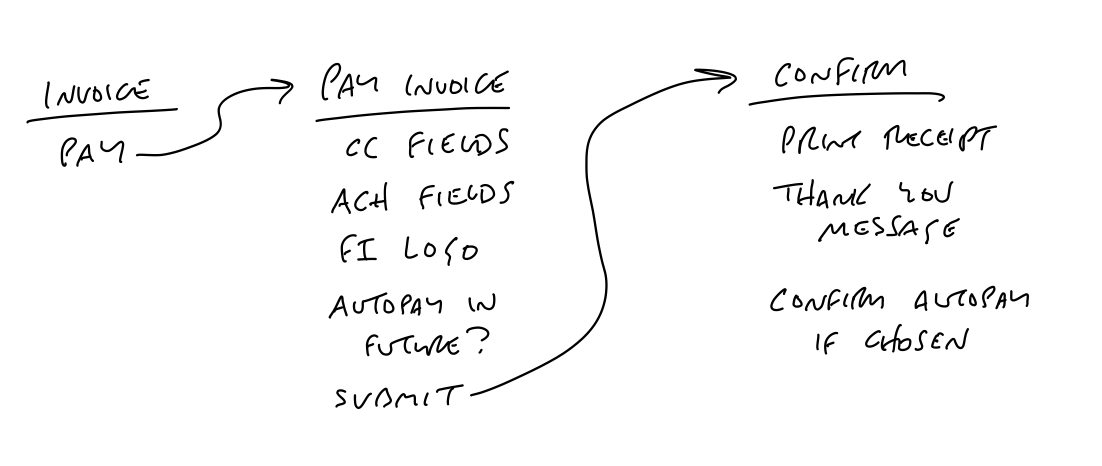 INVOICE
PAY
PAY INVOICE
CC FIELDS
ACH FIELDS
FI LOGO
AUTOPAY IN
FUTURE?
SUBMIT
CONFIRM
PRINT RECEIPT
THANK YOU
MESSAGE
CONFIRM AUTOPAY
IF CHOSEN